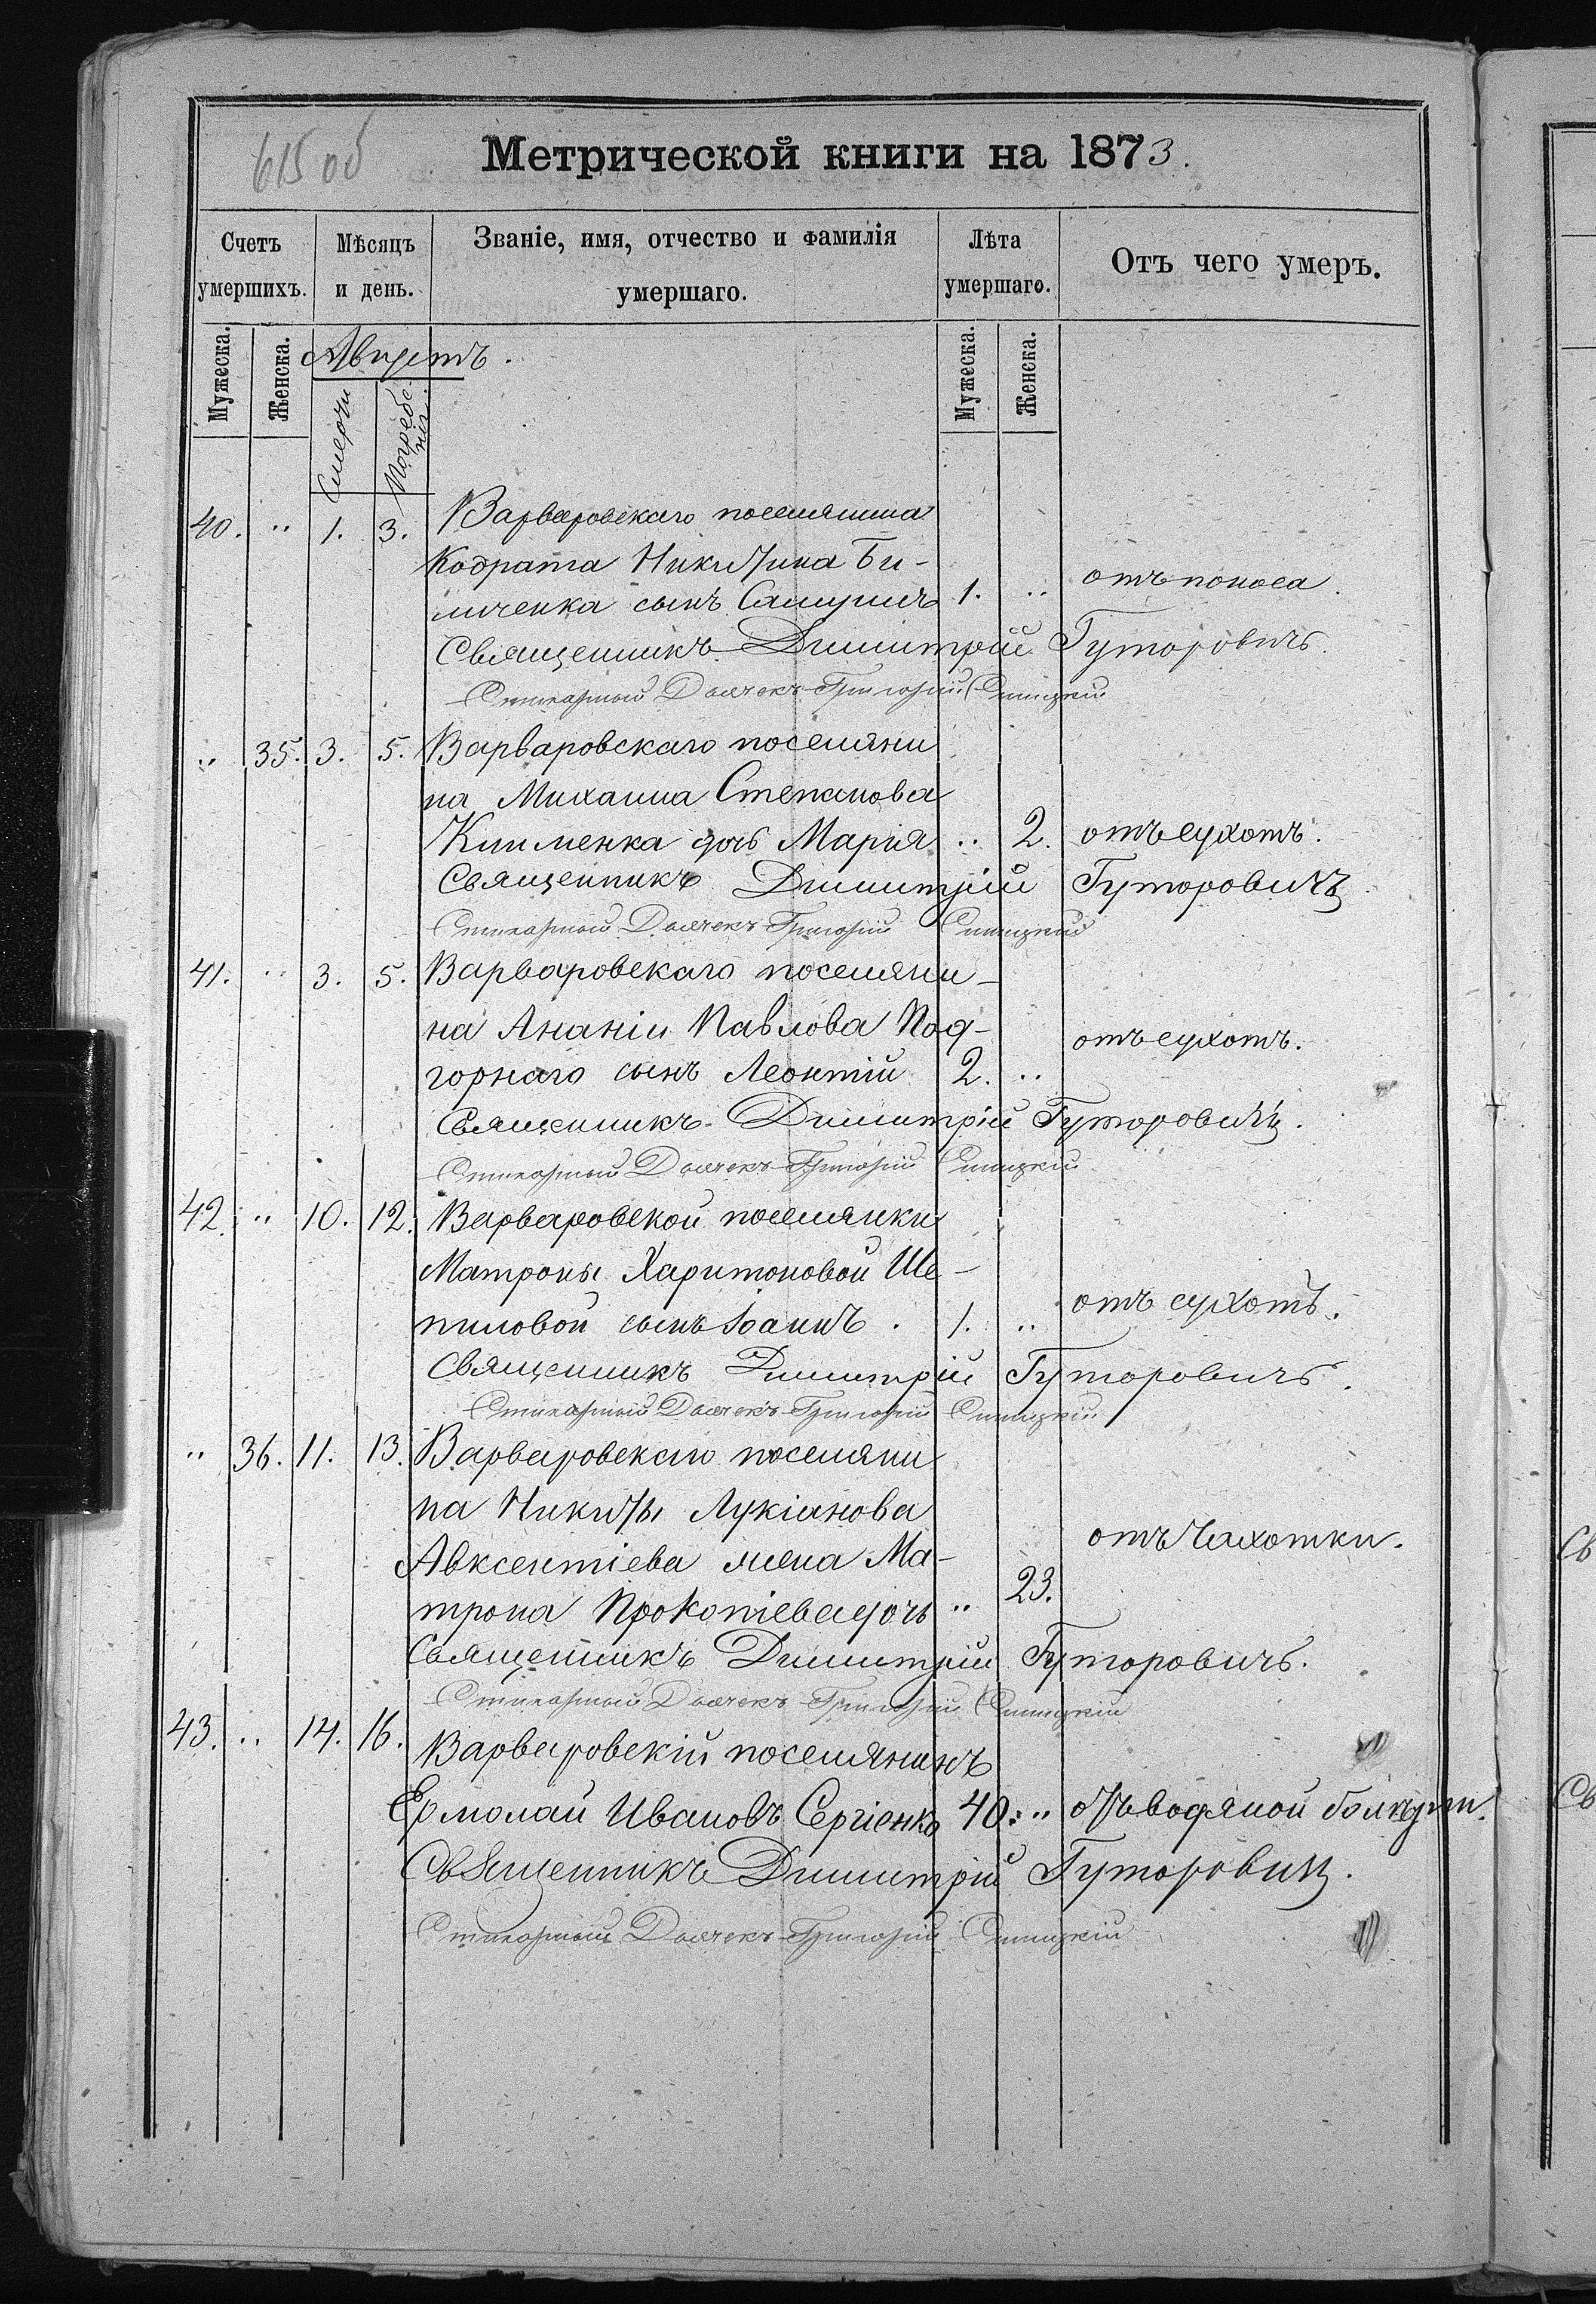 615 об
Метрической книги на 1873.
Счетъ умершихъ.
Мѣсяцъ и день.
Званіе, имя, отчество и фамилія умершаго.
Лѣта умершаго.
Отъ чего умеръ.
Мужеска.
Женска.
Августъ.
Смерти
Погребенія
Мужеска.
Женска.
40. " 1. 3. Варваровскаго поселянина
Кодрата Никитина Би-
личенка сынъ Самуилъ 1. " отъ поноса.
Священникъ Димитрій Гуторовичъ.
Стихарный Дьячекъ Григорій
" 35. 3. 5. Варваровскаго поселяни
на Михаила Степанова
Клименка дочь Марія " 2. отъ сухотъ.
Священникъ Димитрій Гуторовичъ
Стихарный Дьячекъ Григорій
41. " 3. 5. Варваровскаго поселяни-
на Ананіи Павлова Под-
горнаго сынъ Леонтій 2. " отъ сухотъ.
Священникъ Димитрій Гуторовичъ.
Стихарный Дьячекъ Григорій
42. " 10. 12. Варваровской поселянки
Матроны Харитоновой Ше-
пиловой сынъ Іоаннъ. 1. " отъ сухотъ.
Священникъ Димитрій Гуторовичъ.
Стихарный Дьячекъ Григорій
" 36. 11. 13. Варваровскаго поселяни
на Никиты Лукіанова
Авксентіева жена Ма-
трона Прокопіева дочь " 23. отъ чахотки.
Священникъ Димитрій Гуторовичъ.
Стихарный Дьячекъ Григорій
43. " 14. 16. Варваровскій поселянинъ
Ермолай Ивановъ Сергіенко 40. " отъ водяной болѣзни.
Священникъ Димитрій Гуторовичъ.
Стихарный Дьячекъ Григорій
Св
Св